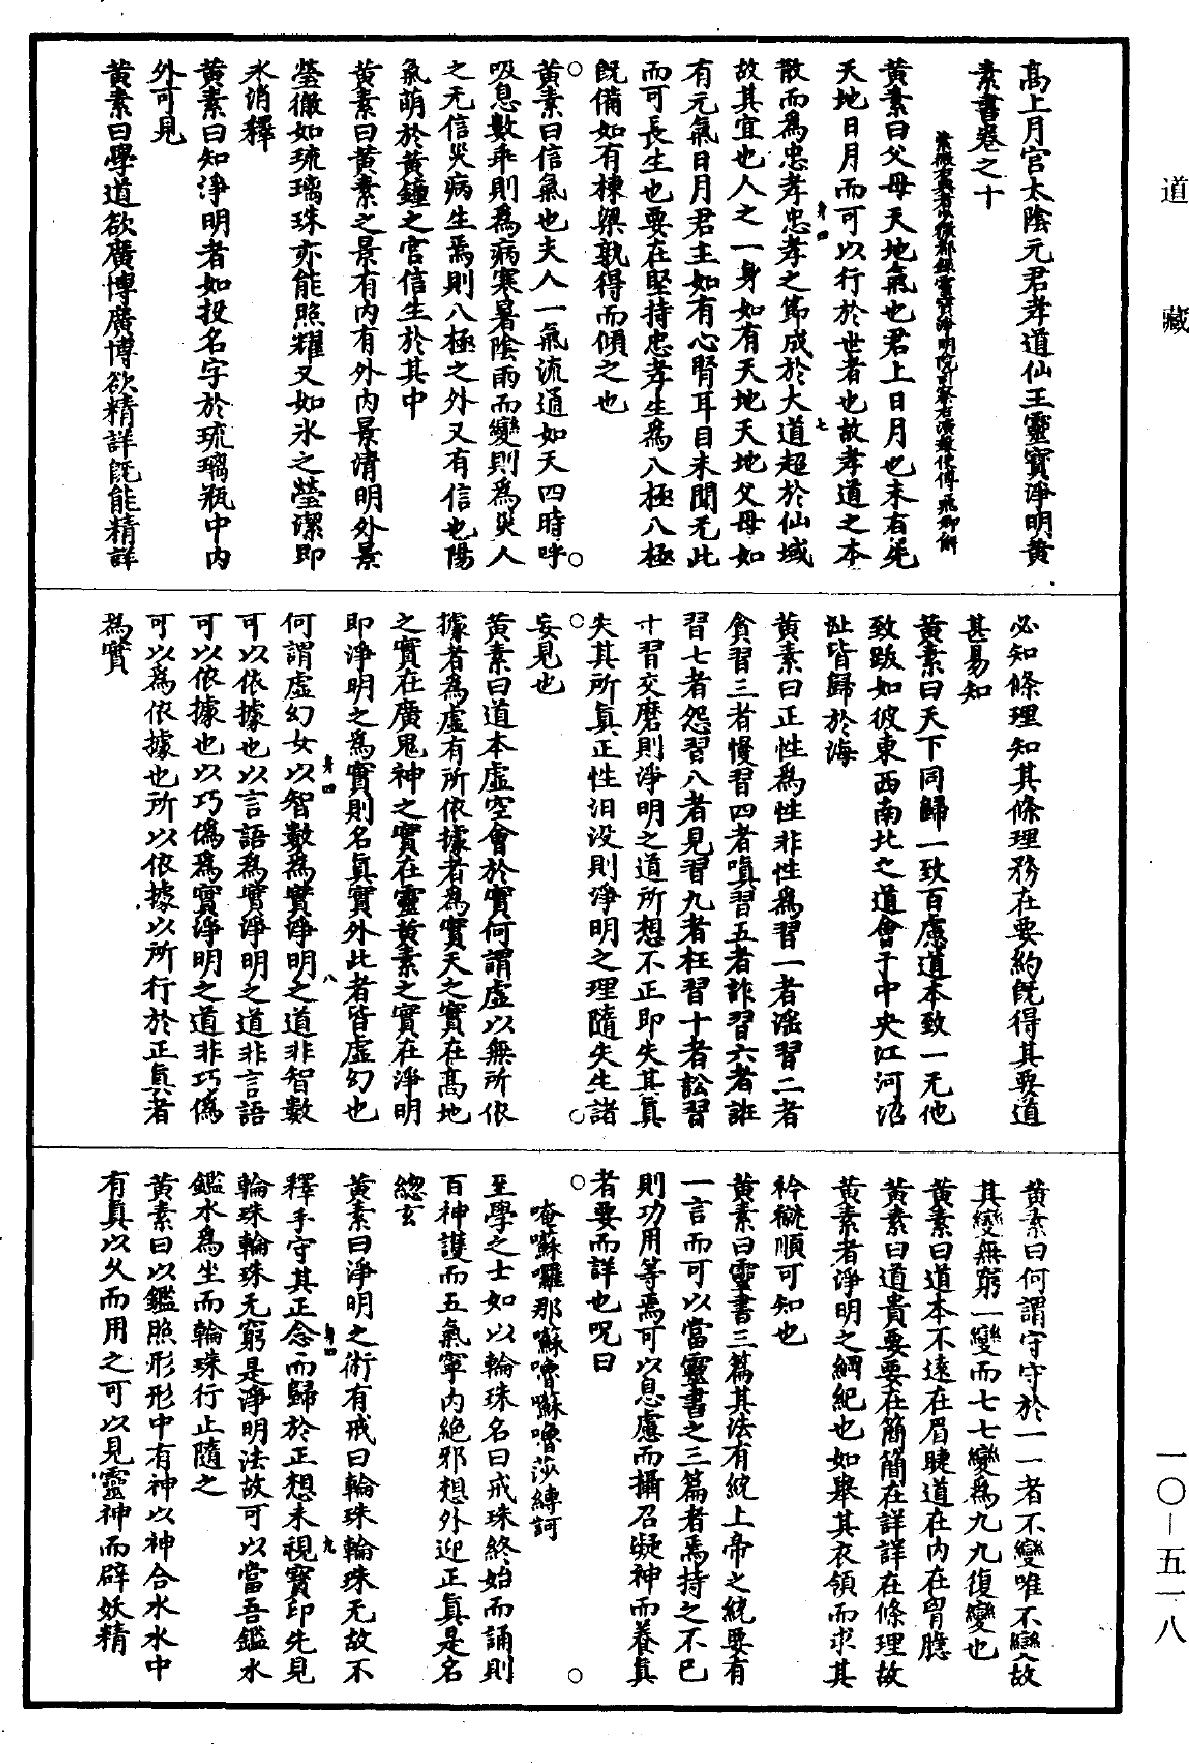 道藏
高上月宮太陰元君孝道仙王靈寶淨明黃
素書卷之十
黃素曰父母天地氣也君上日月也未有先
天地日月而可以行於世者也故孝道之本
散而為忠孝忠孝之篤成於大道超於仙域
故其宜也人之一身如有天地天地父母如
有元氣日月君主如有心腎耳目未聞无此
而可長生也要在堅持忠孝生為八極八極
既備如有棟梁孰得而傾之也
黃素曰信氣也夫人一氣流通如天四時呼
吸息數乖則為病寒暑陰雨而變則為災人
之无信災病生焉則八極之外又有信也陽
氣萌於黃鐘之宮信生於其中
黃素曰黃素之景有內有外內景清明外景
瑩徹如琉璃珠亦能照耀又如氷之瑩潔即
氷消釋
黃素曰知淨明者如投名字於琉璃瓶中內
外可見
黃素曰學道欲廣博廣博欲精詳既能精詳
必知條理知其條理務在要約既得其要道
甚易知
黃素曰天下同歸一致百慮道本致一无他
致跋如彼東西南北之道會于中央江河沼
沚皆歸於海
黃素曰正性為性非性為習一者滛習二者
貪習三者慢習四者嗔習五者詐習六者誑
習七者怨習八者見習九者枉習十者訟習
十習交磨則淨明之道所想不正即失其真
失其所真正性汨没則淨明之理隨失生諸
妄見也
黃素曰道本虛空會於實何謂虛以無所依
據者為虛有所依據者為實天之實在高地
之實在廣鬼神之實在靈黃素之實在淨明
即淨明之為實則名真實外此者皆虛幻也
何謂虛幻女以智數為實淨明之道非智數
可以依據也以言語為實淨明之道非言語
可以依據也以巧僞為實淨明之道非巧僞
可以為依據也所以依據以所行於正真者
為實
黃素曰何謂守守於一一者不變唯不變故
其變無窮一變而七七變為九九復變也
黃素曰道本不遠在眉睫道在內在胷臆
黃素曰道貴要要在簡簡在詳詳在條理故
黃素者淨明之綱紀也如舉其衣領而求其
衿襱順可知也
黃素曰靈書三篇其法有統上帝之統要有
一言而可以當靈書之三篇者焉持之不已
則功用等焉可以息慮而攝召凝神而養真
者要而詳也呪曰
唵囌囉那囌嚕囌嚕莎縛訶
至學之士如以輪珠名曰戒珠終始而誦則
百神護而五氣寧內絶邪想外迎正真是名
緫玄
黃素曰淨明之術有戒曰輪珠輪珠无故不
釋手守其正念而歸於正想未視寶印先見
輪珠輪珠无窮是淨明法故可以當吾鑑水
鑑水為坐而輪珠行止隨之
黃素曰以鑑照形形中有神以神合水水中
有真以久而用之可以見靈神而辟妖精
一〇—五一八